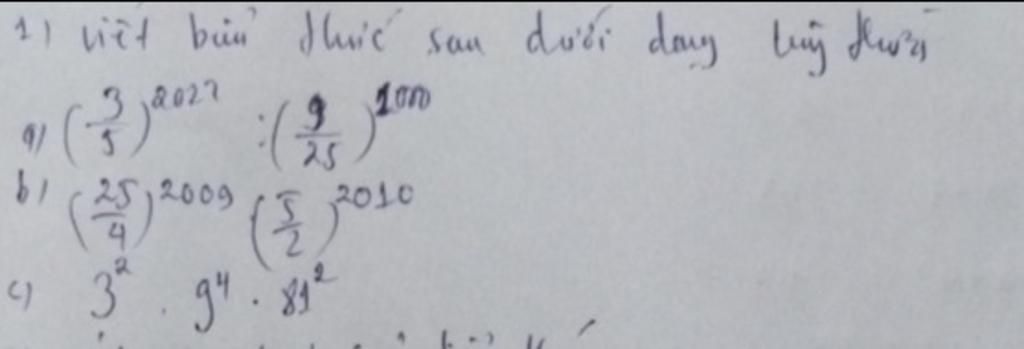 1) viết biểu thức sau dưới dạng luỹ thừa
a) (3/5)^202? : (9/25)^1000
b) (25/4)^2009 (5/2)^2010
c) 3^2 . 9^4 . 81^2